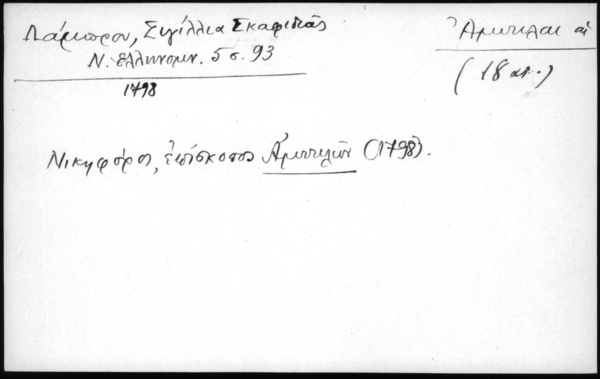 Λάμπρου, Σιγίλλια Σκαφιδιᾶς
Ν. Ἑλληνομν. 5 σ. 93
1798
Ἄμπελαι αἱ
(18 αι.)
Νικηφόρος, ἐπίσκοπος Ἀμπελῶν (1798).